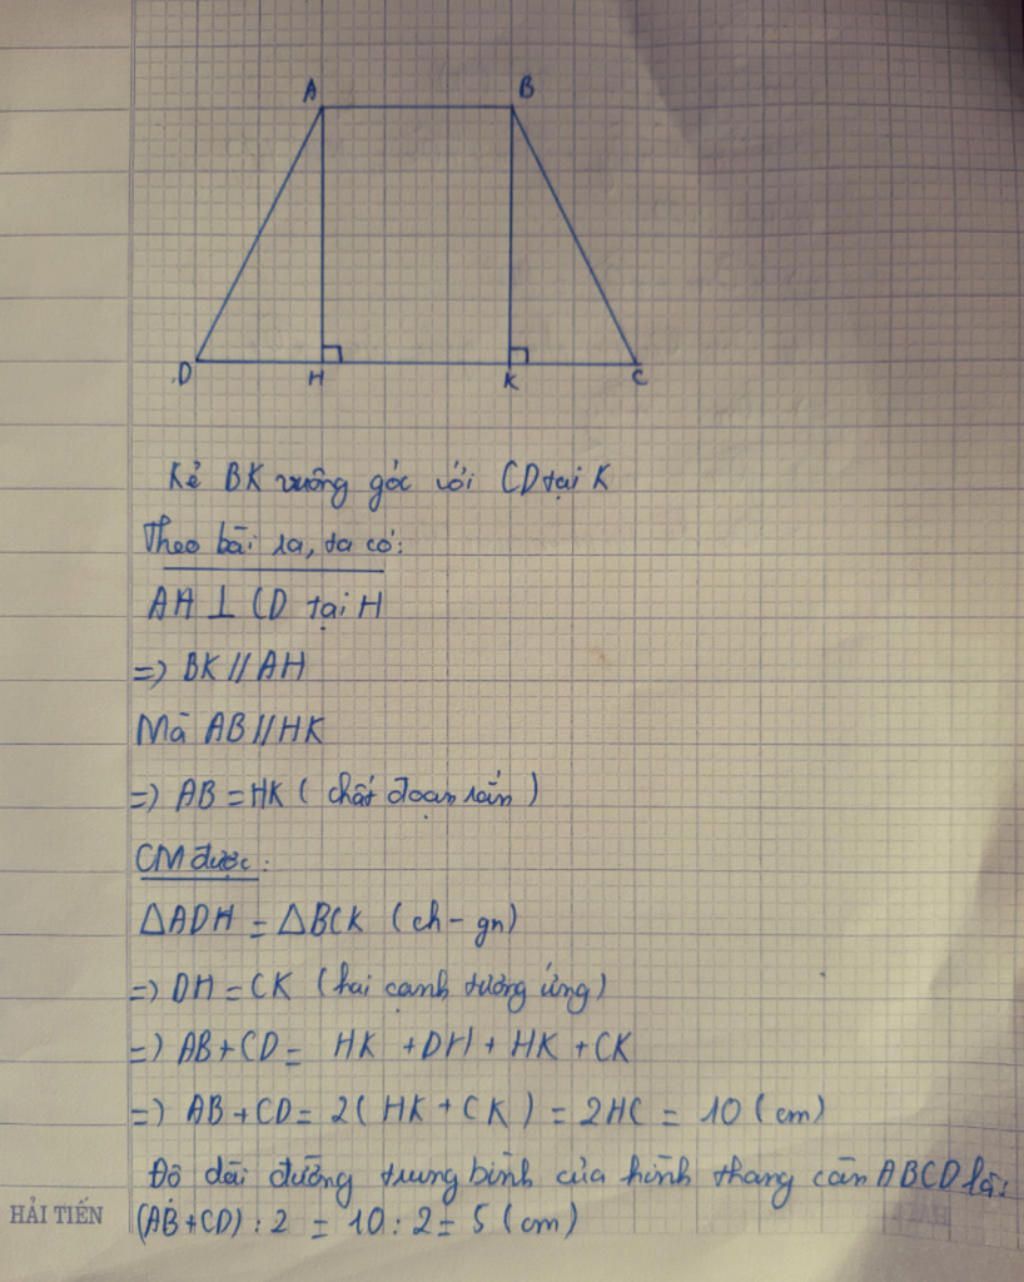 A B
D H K C
Kẻ BK vuông góc với CD tại K
Theo bài ra, ta có:
AH ⊥ CD tại H
=> BK // AH
Mà AB // HK
=> AB = HK ( chất đoạn chắn )
CM được:
△ADH = △BCK (ch - gn)
=> DH = CK (hai cạnh tương ứng)
=> AB + CD = HK + DH + HK + CK
=> AB + CD = 2( HK + CK ) = 2HC = 10 (cm)
Độ dài đường trung bình của hình thang cân ABCD là:
(AB + CD) : 2 = 10 : 2 = 5 (cm)
HẢI TIẾN